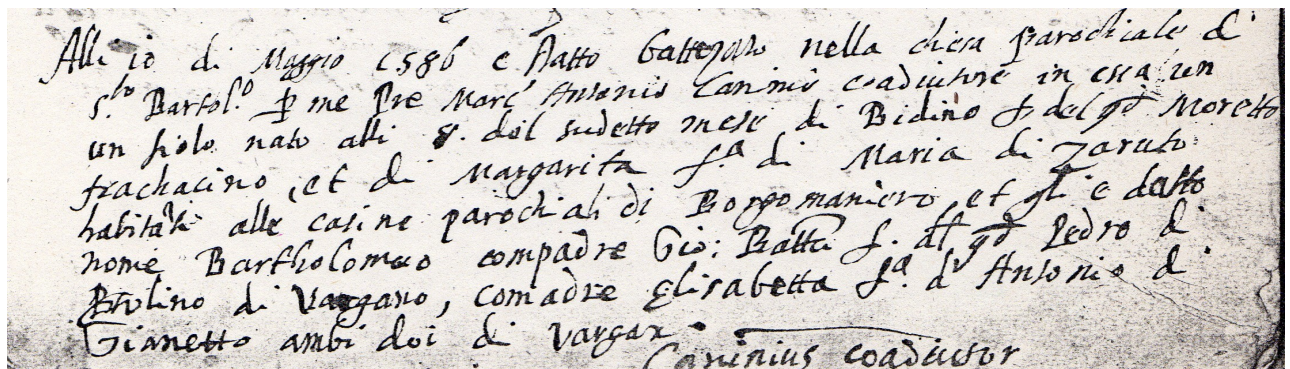 Alli io di Maggio 1586 e stato battezato nella chiesa parochiale di
s.to Bartol.o p me Pre Marc Antonio Caninio coadiutore in essa un
un fiolo nato alli 8. del sudetto mese di Bidino f. del qd Moretto
frachacino, et di Margarita f.a di Maria di Zaruto
habitati alle casine parochiali di Borgomaniero, et gli e datto
nome Bartholomeo compadre Gio: Batta f. al qd Pedro di
di Vargano, comadre Elisabetta f.a d Antonio di
Gianetto ambi doi di Vargan
Caninius coadiutor